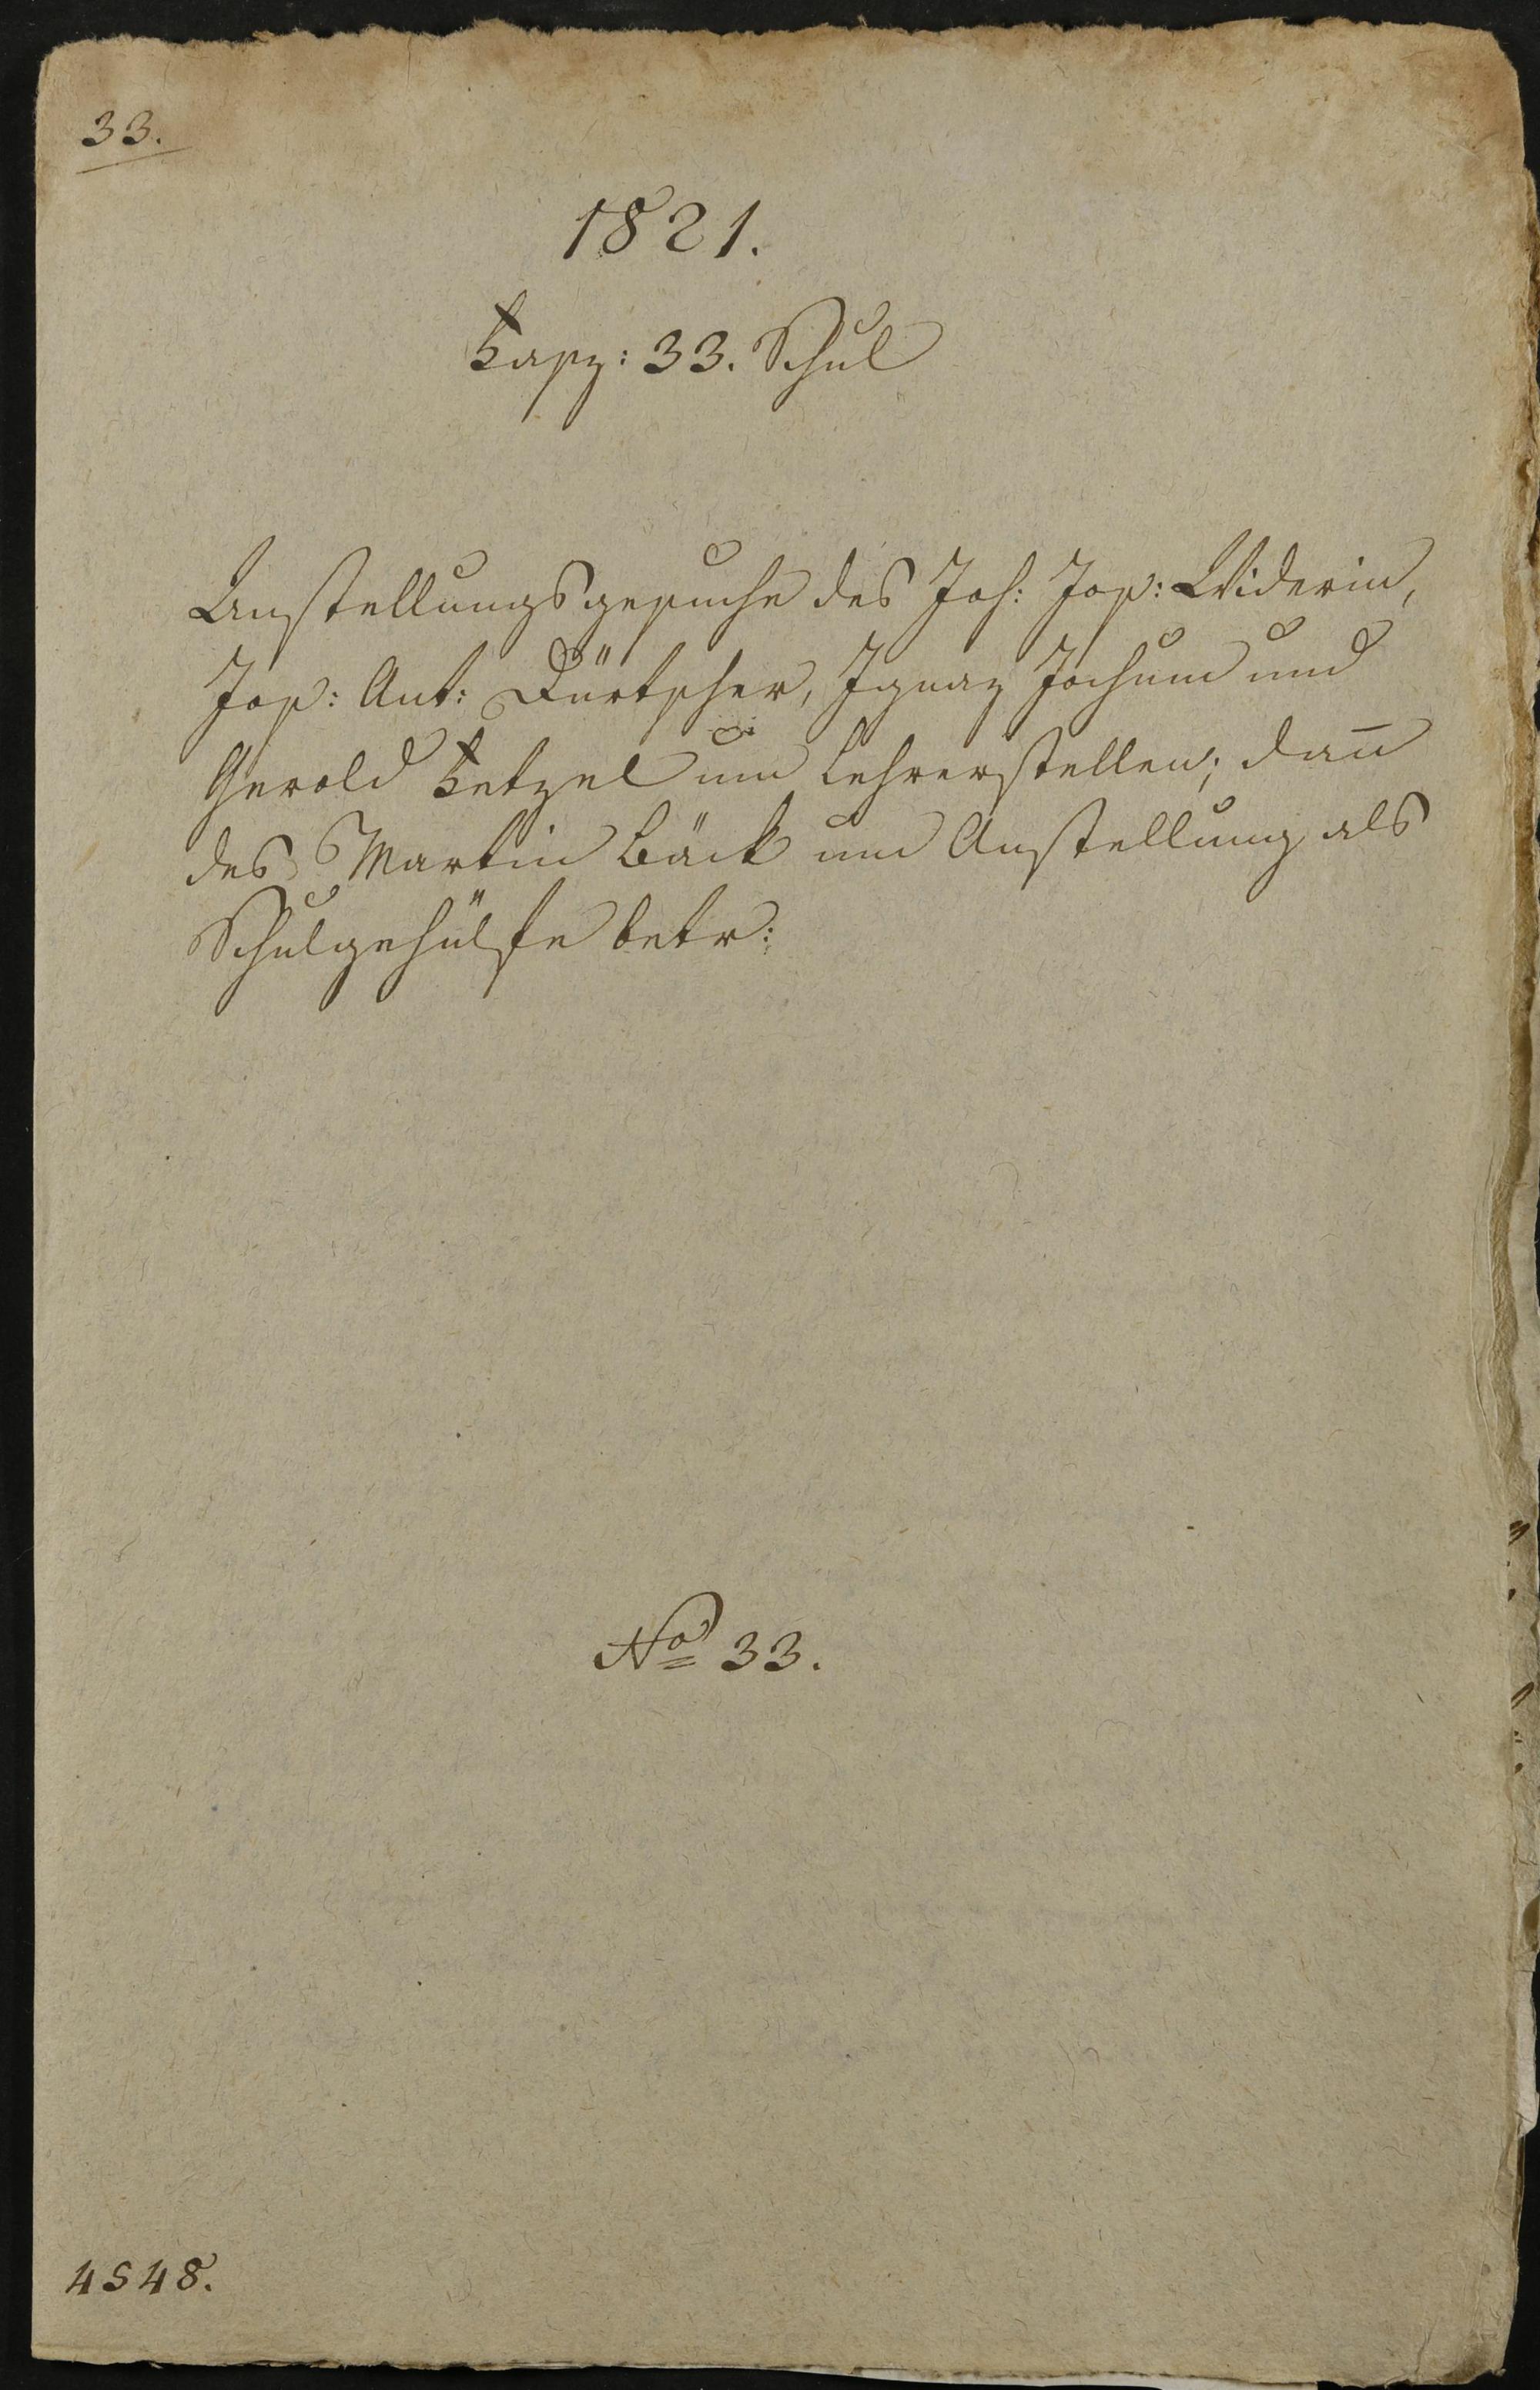 33.
1821.
Fasz: 33. Schul
Anstellungsgesuche des Joh: Jos: Widerin,
Jos: Ant: Dürtscher, Ignaz Jochum und
Gerold Ketzel um Lehrerstellen; dann
des Martin Bäck um Anstellung als
Schulgehülfe betr:
No 33.
4548.